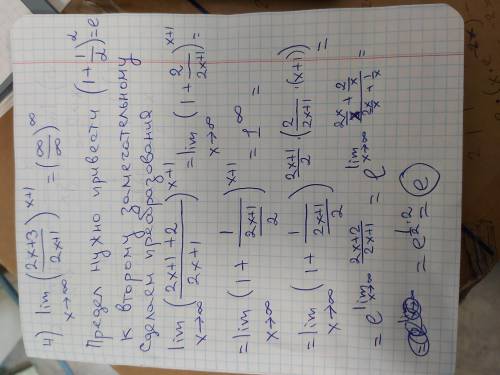 4) lim x→∞ ((2x+3)/(2x+1))^(x+1) = (∞/∞)^∞
Предел нужно привести (1+1/2)^2=e
к второму замечательному
Сделаем преобразования
lim x→∞ ((2x+1+2)/(2x+1))^(x+1) = lim x→∞ (1+2/(2x+1))^(x+1) =
= lim x→∞ (1+1/((2x+1)/2))^(x+1) = 1^∞ =
= lim x→∞ (1+1/((2x+1)/2))^((2x+1)/2·(2/(2x+1)·(x+1))) =
= e^(lim x→∞ (2x+2)/(2x+1)) = e^(lim x→∞ (2x/x+2/x)/(2x/x+1/x)) =
= e^(1/2·2) = e